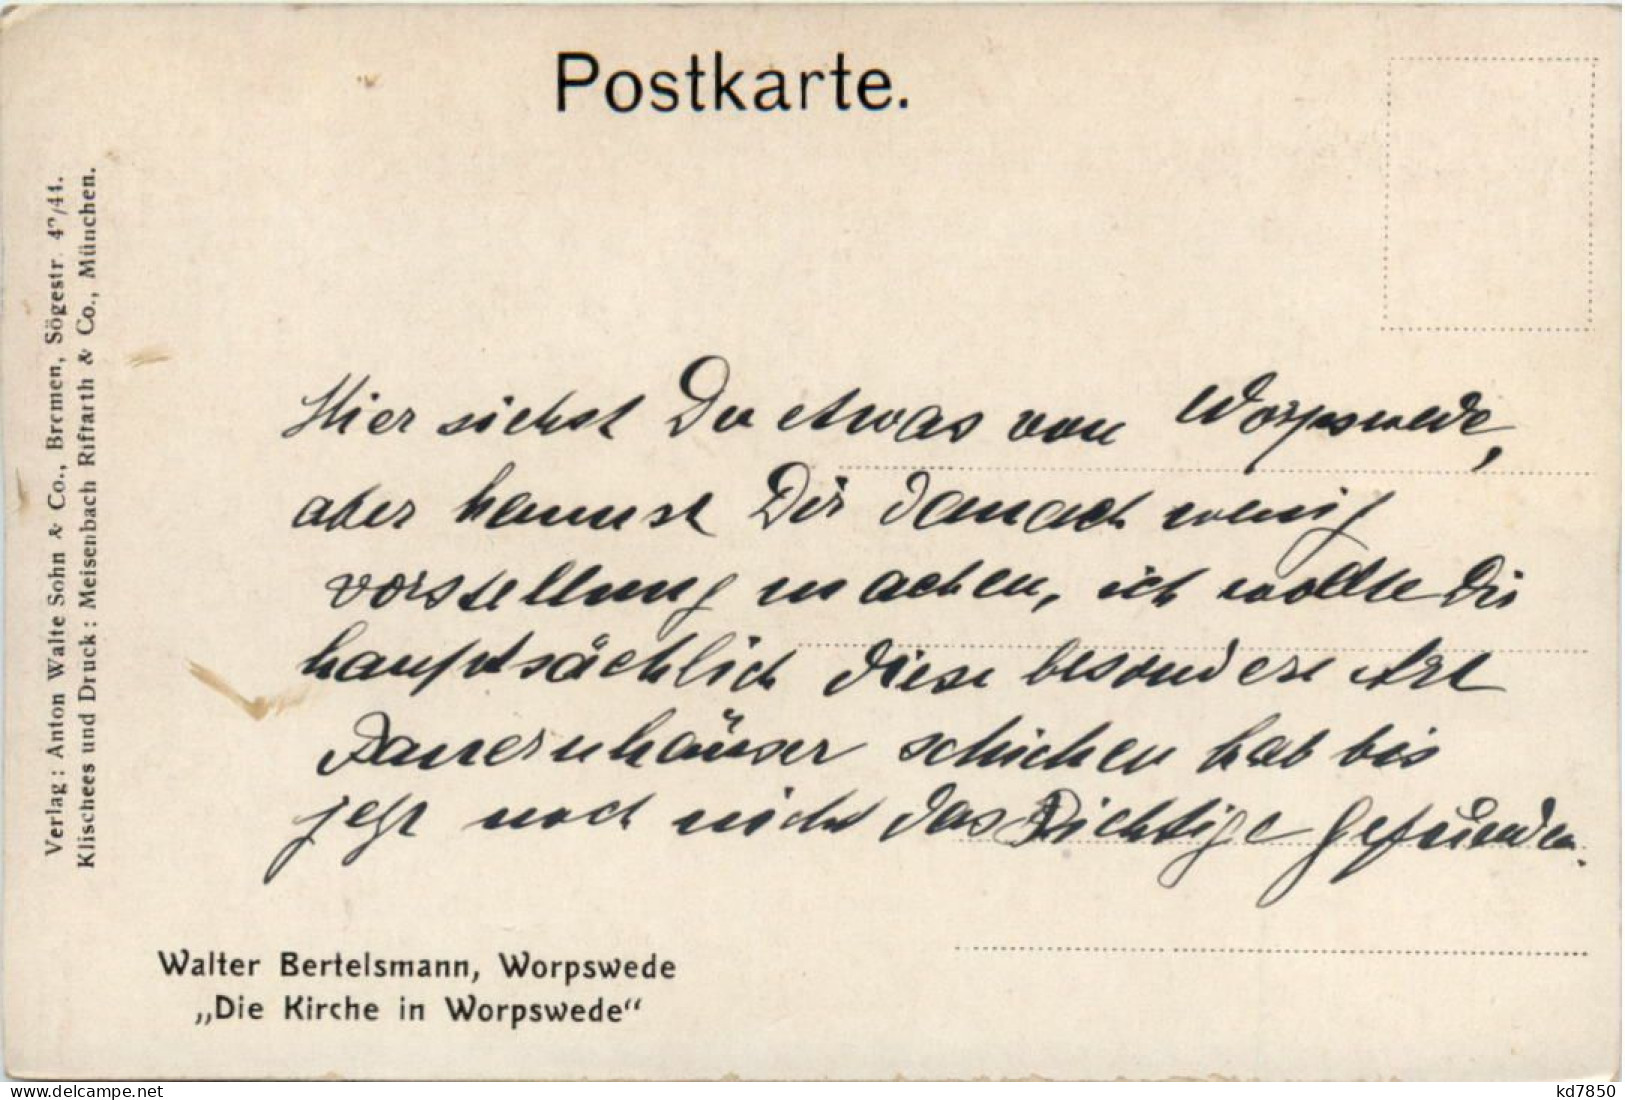 Postkarte.
Verlag: Anton Walte Sohn & Co., Bremen, Sögestr. 47/41.
Klischees und Druck: Meisenbach Riffarth & Co., München.
Hier siehst Du etwas von Worpswede,
aber kannst Dir danach wenig
vorstellung machen, ich wollte Dir
hauptsächlich diese besondere Art
Bauernhäuser schicken hab bis
jetzt noch nicht das Richtige gefunden.
Walter Bertelsmann, Worpswede
„Die Kirche in Worpswede“
delcampe.net
kd7850